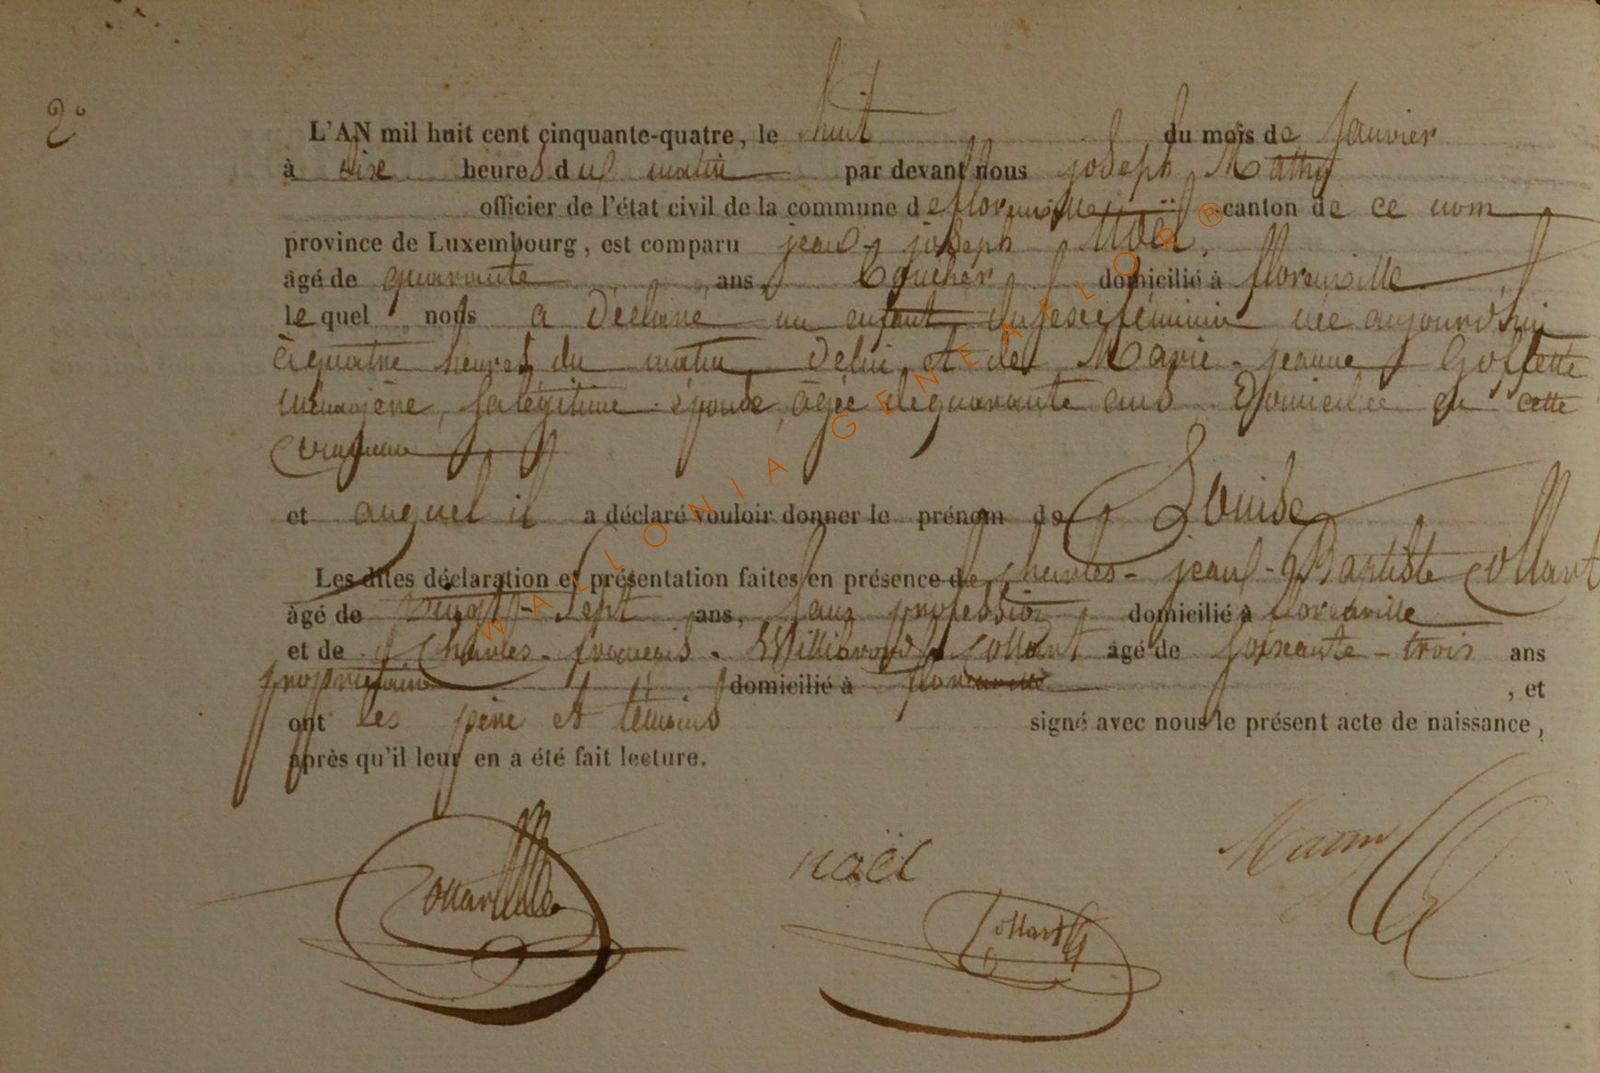 2°
L'AN mil huit cent cinquante-quatre, le huit du mois de Janvier
à dix heures du matin par devant nous joseph Mathy
officier de l'état civil de la commune de florenville canton de ce nom
province de Luxembourg, est comparu jean-joseph Noël,
âgé de quarante ans, Boucher domicilié à florenville
lequel nous a déclaré un enfant du sexe féminin née aujourd'hui
à quatre heures du matin, de lui et de Marie-jeanne Goffette
ménagère, sa légitime épouse, âgée de quarante ans Domiciliée en cette
commune
et auquel il a déclaré vouloir donner le prénom de Louise
Les dites déclaration et présentation faites en présence de Charles-jean-Baptiste Collart
âgé de vingt-sept ans, sans profession, domicilié à florenville
et de Charles-français-Willibrord Collart âgé de soixante-trois ans
propriétaire domicilié à florenville, et
ont les père et témoins signé avec nous le présent acte de naissance,
après qu'il leur en a été fait lecture.
Collart noël Mathy
Collart
WALLONIA GENEALOR®